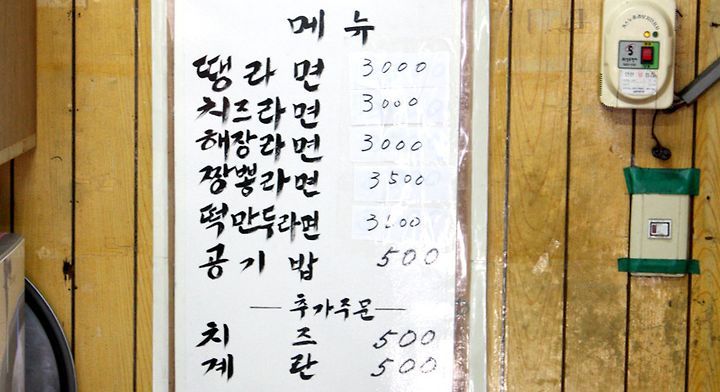 메뉴
땡라면 3000
치즈라면 3000
해장라면 3000
짬뽕라면 3500
떡만두라면
공기밥 500
추가주문
치즈 500
계란 500